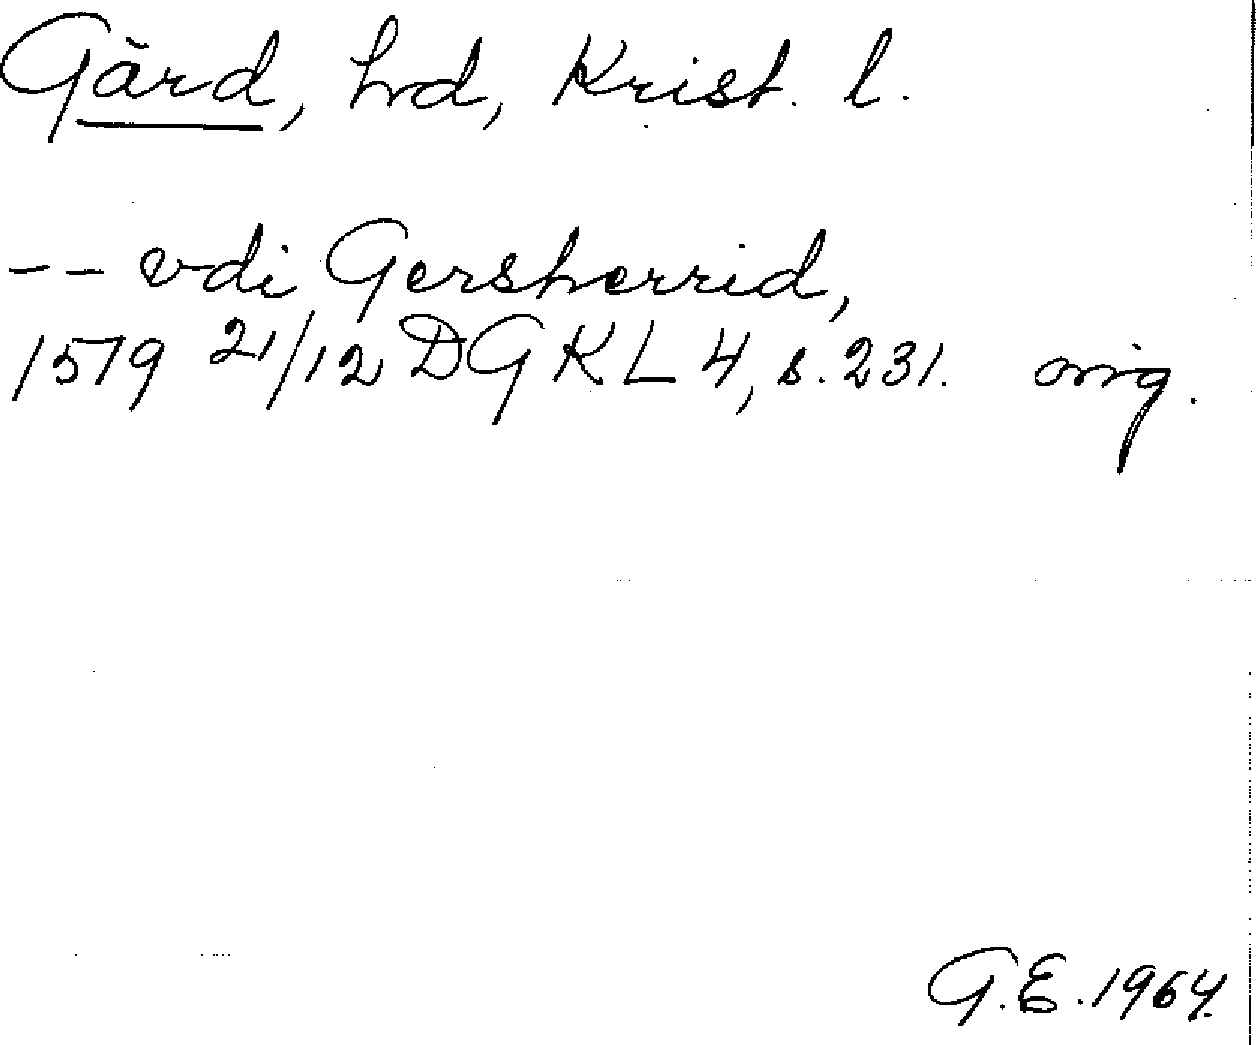 Gärd, hd, Krist. l.
-- vdi Gersherrid,
1579 21/12 DGKL 4, s. 231. orig.
G.E. 1964.